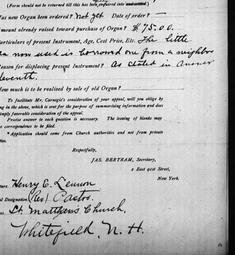 (Form should not be returned till this has been referred into submission and
as Organ been ordered? Not yet Date of order?
mount already raised toward purchase of Organ? $75.00.
articulars of present Instrument, Age, Cost Price, Etc. The little
now used is borrowed one from a neighbor
eason for displacing present Instrument? As stated in Answer
Seventh.
ow much is to be realized by sale of old Organ?
To facilitate Mr. Carnegie's consideration of your appeal, will you oblige by
the above, which is compact statement of your information and does
imply favorable consideration of the appeal.
Precise answer to each question is necessary. The issuing of blanks may
correspondence to be filed.
Application should come from Church authorities and not from private
Respectfully,
JAS. BERTRAM, Secretary,
2 East 91st Street,
New York.
Henry E. Lennon
al Designation (Rev) Pastor.
St. Matthews Church,
Whitefield, N. H.